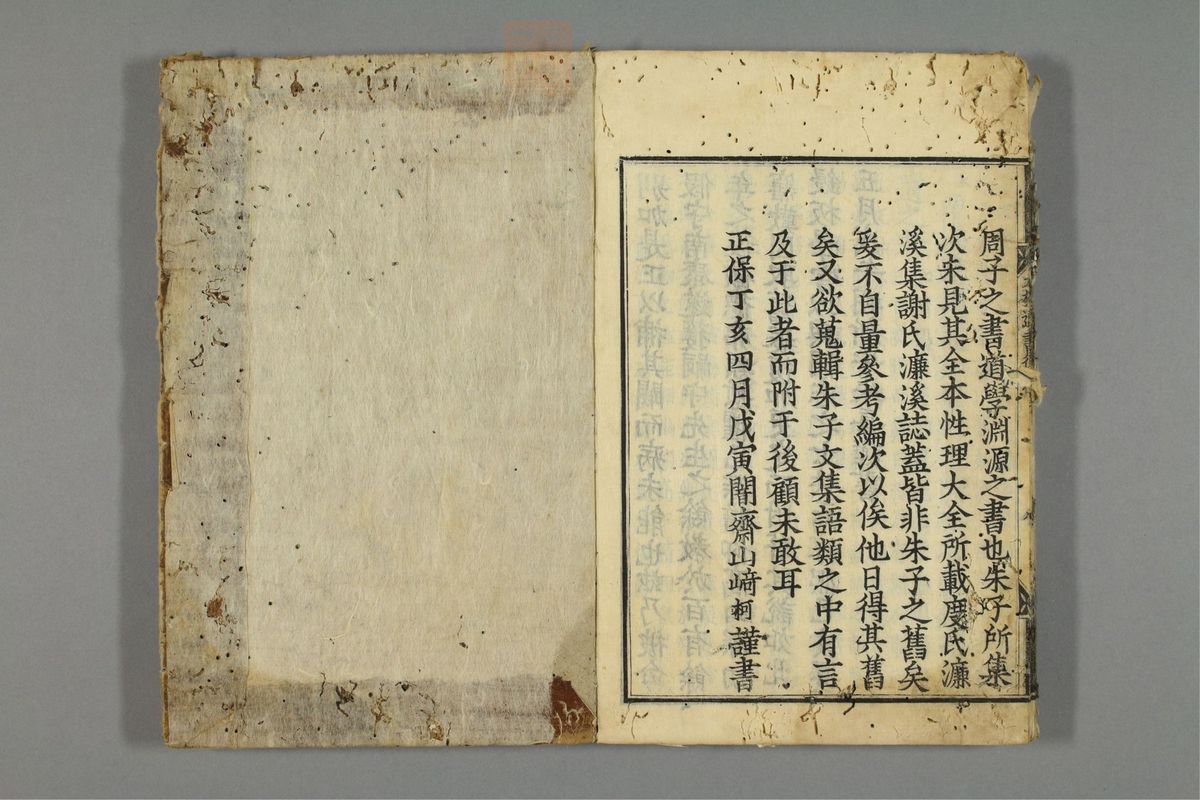 周子之書道學淵源之書也朱子所集
次未見其全本性理大全所載度氏濂
溪集謝氏濂溪誌蓋皆非朱子之舊矣
爰不自量參考編次以俟他日得其舊
矣又欲蒐輯朱子文集語類之中有言
及于此者而附于後顧未敢耳
正保丁亥四月戊寅闇齋山﨑柯謹書